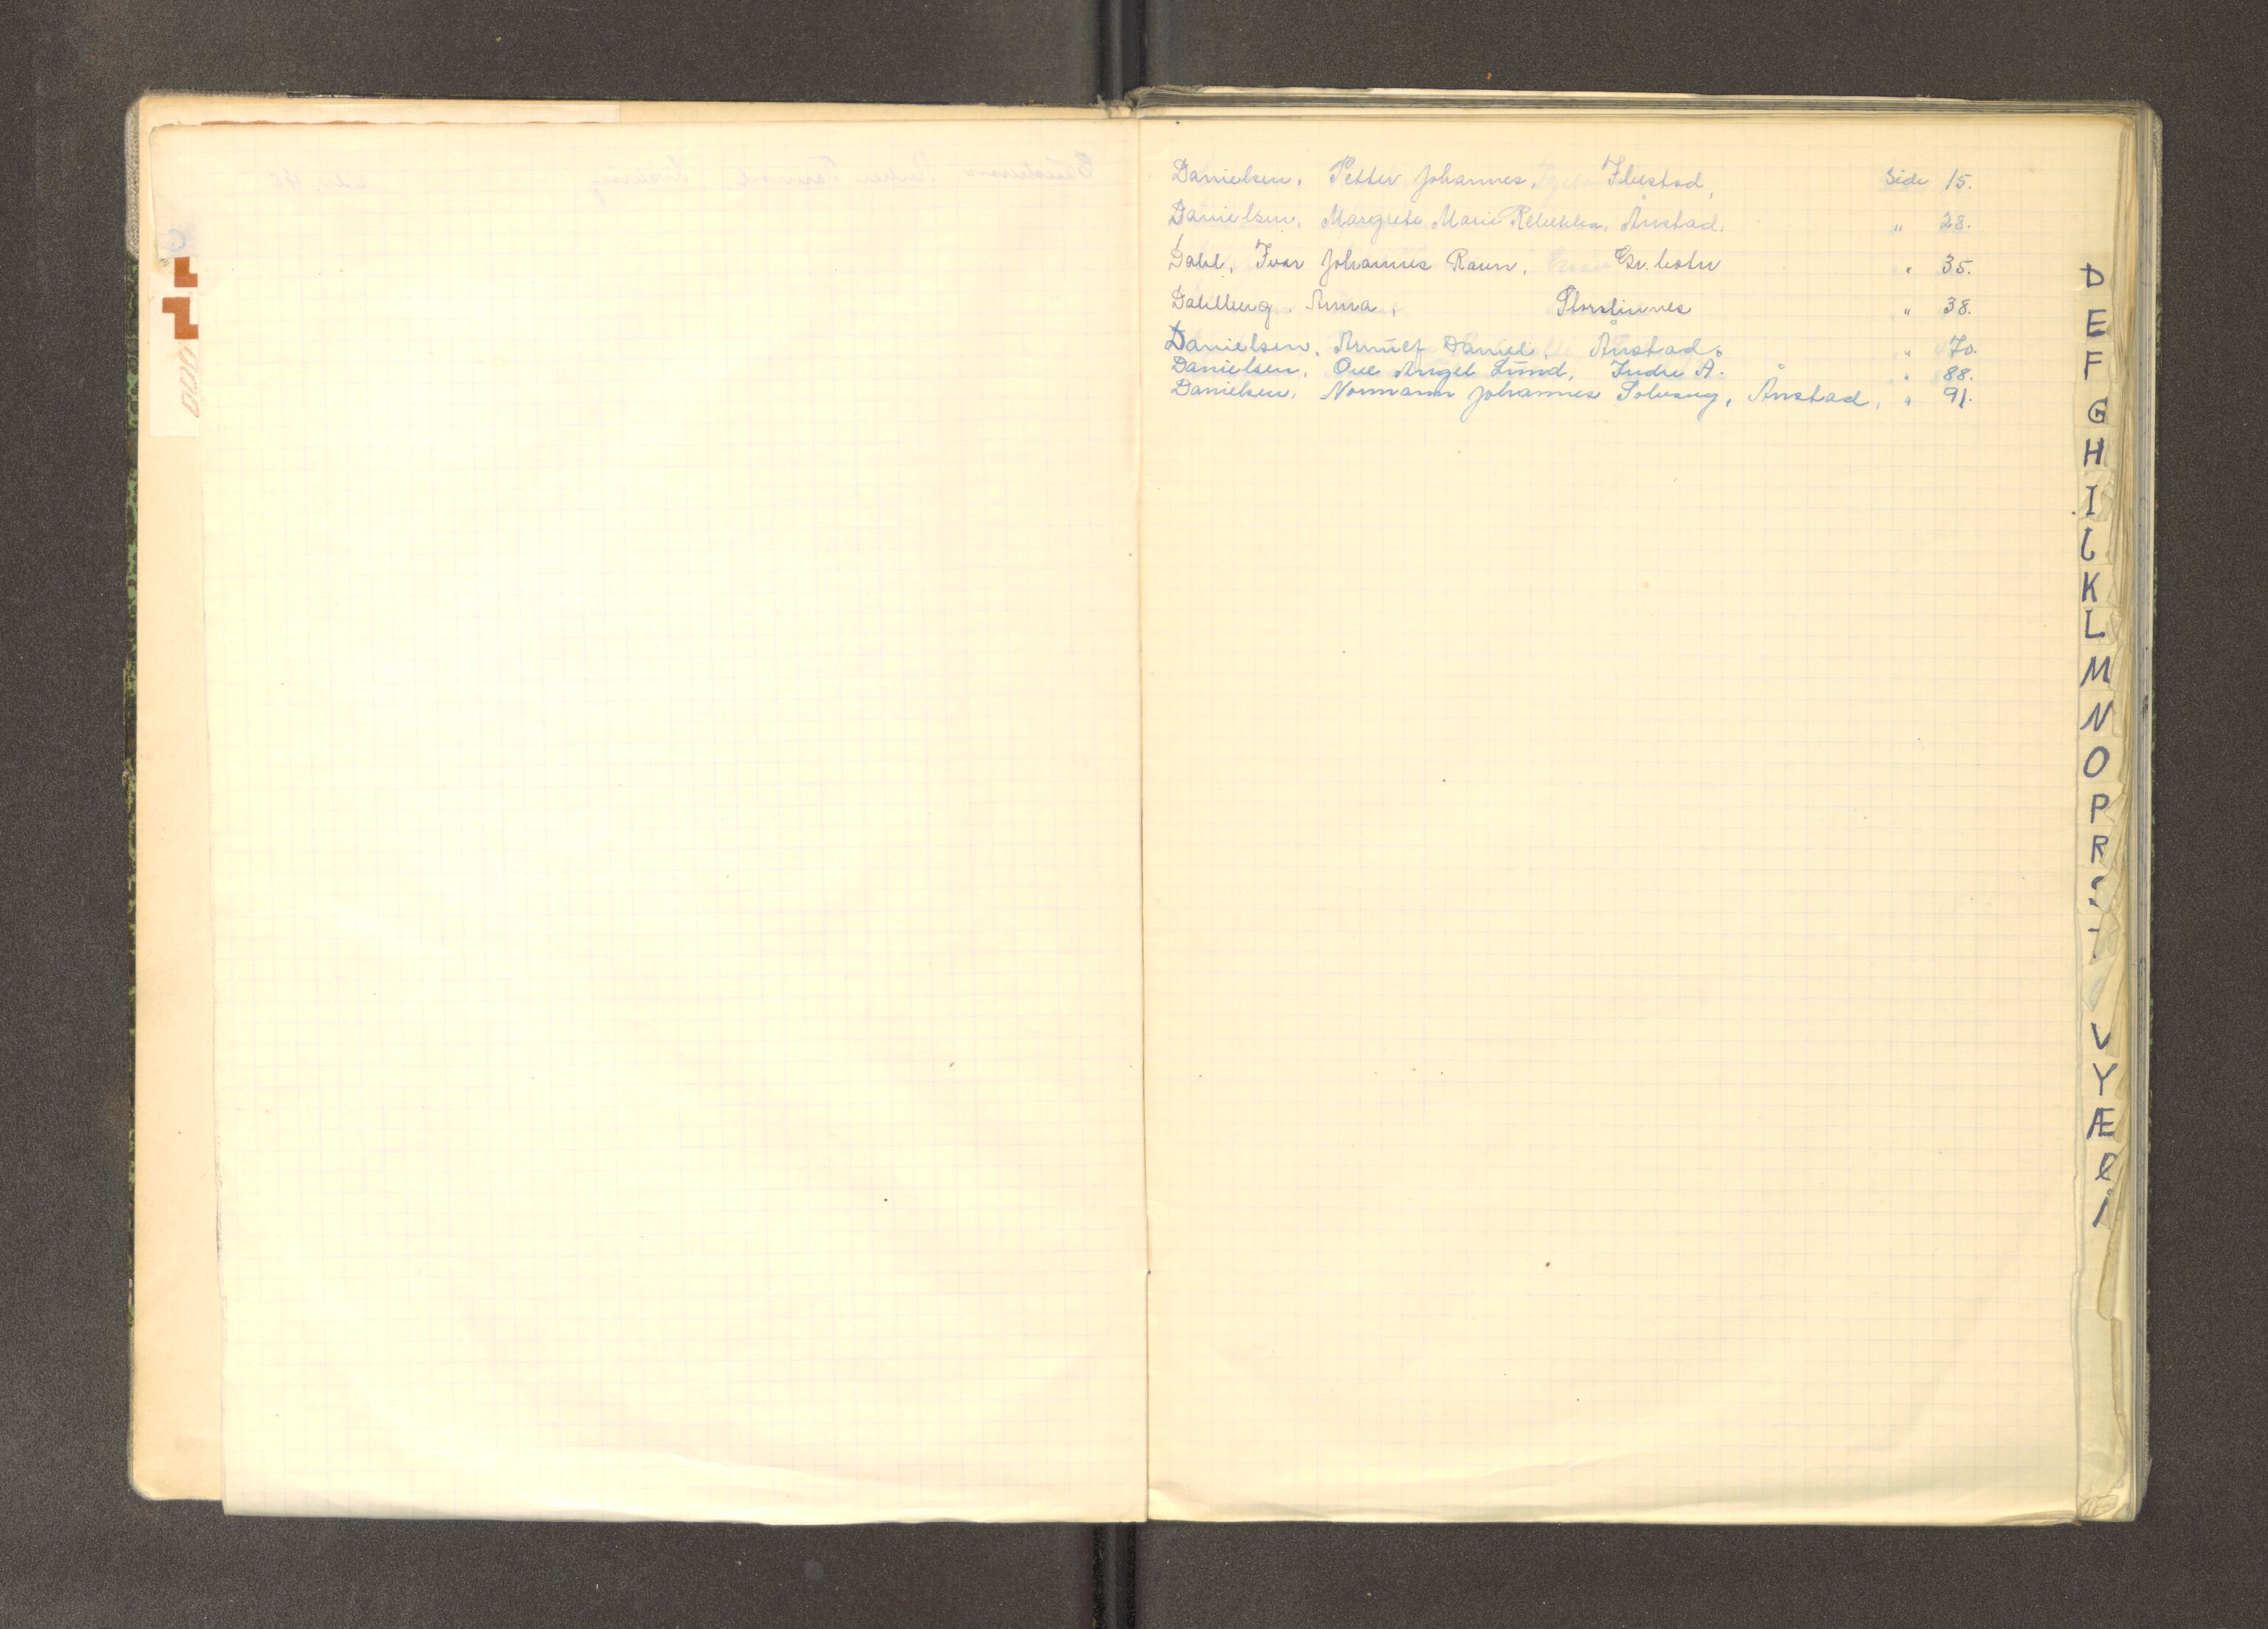 Danielsen, Petter Johannes, Ibestad, Side 15.
Danielsen, Margrete Marie Rebekka, Ånstad. " 28.
Dahl, Ivar Johannes Raun, Gr.botn " 35.
Dahlberg, Anna, Storslinnes " 38.
Danielsen, Arnulf Daniel, Ånstad. " 70.
Danielsen, Ove Angel Lund, Indre A. " 88.
Danielsen, Normann Johannes Solvang, Ånstad, " 91.
D
E
F
G
H
I
J
K
L
M
N
O
P
R
S
T
V
Y
Æ
Ø